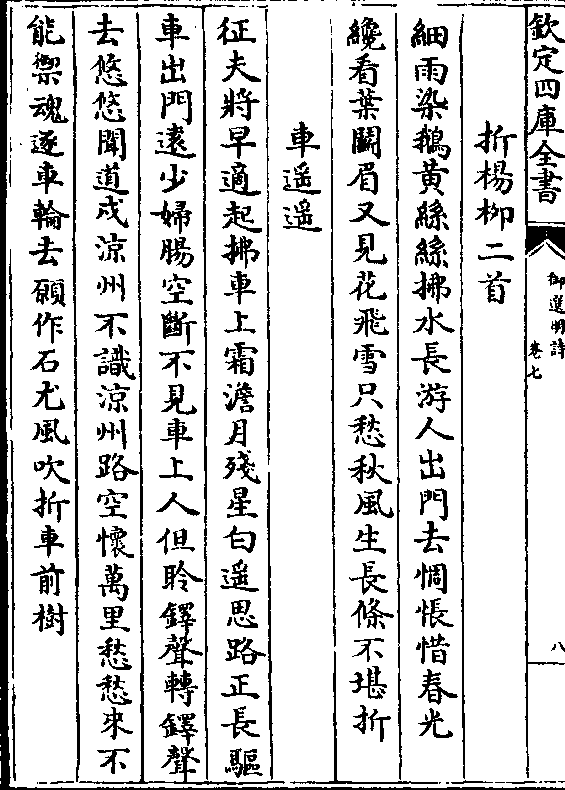 欽定四庫全書
御選明詩
卷七
八
折楊柳二首
細雨染鵝黄絲絲拂水長游人出門去惆悵惜春光
纔看葉鬬眉又見花飛雪只愁秋風生長條不堪折
車遥遥
征夫將早適起拂車上霜澹月殘星白遥思路正長驅
車出門遠少婦腸空斷不見車上人但聆鐸聲轉鐸聲
去悠悠聞道戍涼州不識涼州路空懷萬里愁愁來不
能禦魂逐車輪去願作石尤風吹折車前樹